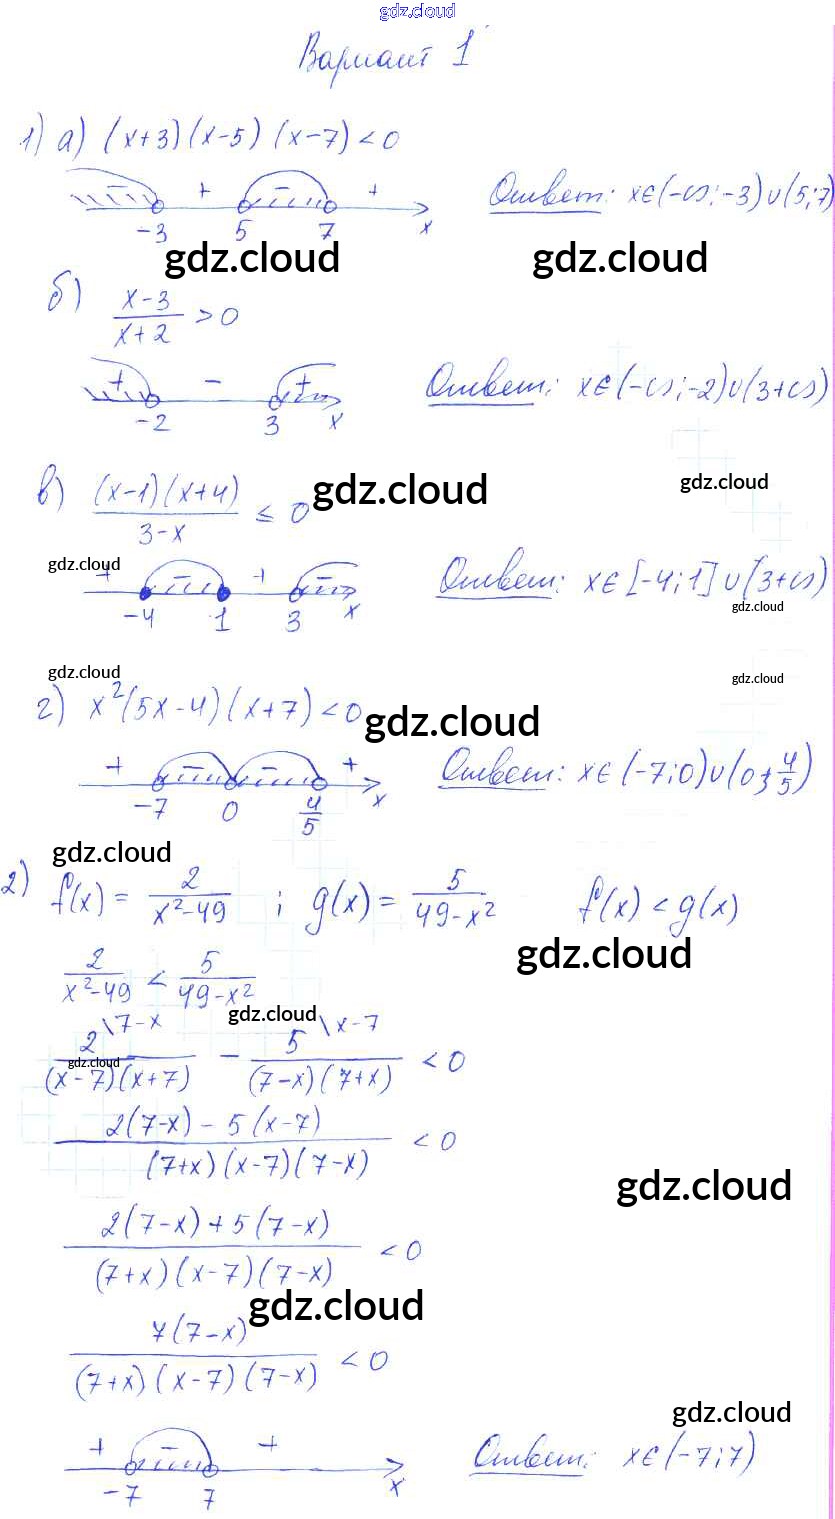 gdz.cloud
Вариант 1
1) а) (x+3)(x-5)(x-7)<0
- + - +
-3 5 7 x
Ответ: x∈(-∞;-3)∪(5;7)
gdz.cloud gdz.cloud
б) (x-3)/(x+2) > 0
+ - +
-2 3 x
Ответ: x∈(-∞;-2)∪(3+∞)
в) (x-1)(x+4)/(3-x) ≤ 0
gdz.cloud gdz.cloud
gdz.cloud
+ - + -
-4 1 3 x
Ответ: x∈[-4;1]∪(3+∞)
gdz.cloud
gdz.cloud gdz.cloud
г) x²(5x-4)(x+7)<0
gdz.cloud
+ - - +
-7 0 4/5 x
Ответ: x∈(-7;0)∪(0;4/5)
gdz.cloud
2) f(x) = 2/(x²-49) ; g(x) = 5/(49-x²) f(x)<g(x)
gdz.cloud
2/(x²-49) < 5/(49-x²)
gdz.cloud
2\7-x/((x-7)(x+7)) - 5\x-7/((7-x)(7+x)) < 0
gdz.cloud
(2(7-x) - 5(x-7))/((7+x)(x-7)(7-x)) < 0
gdz.cloud
(2(7-x)+5(7-x))/((7+x)(x-7)(7-x)) < 0
gdz.cloud
7(7-x)/((7+x)(x-7)(7-x)) < 0
gdz.cloud
+ - +
-7 7 x
Ответ: x∈(-7;7)